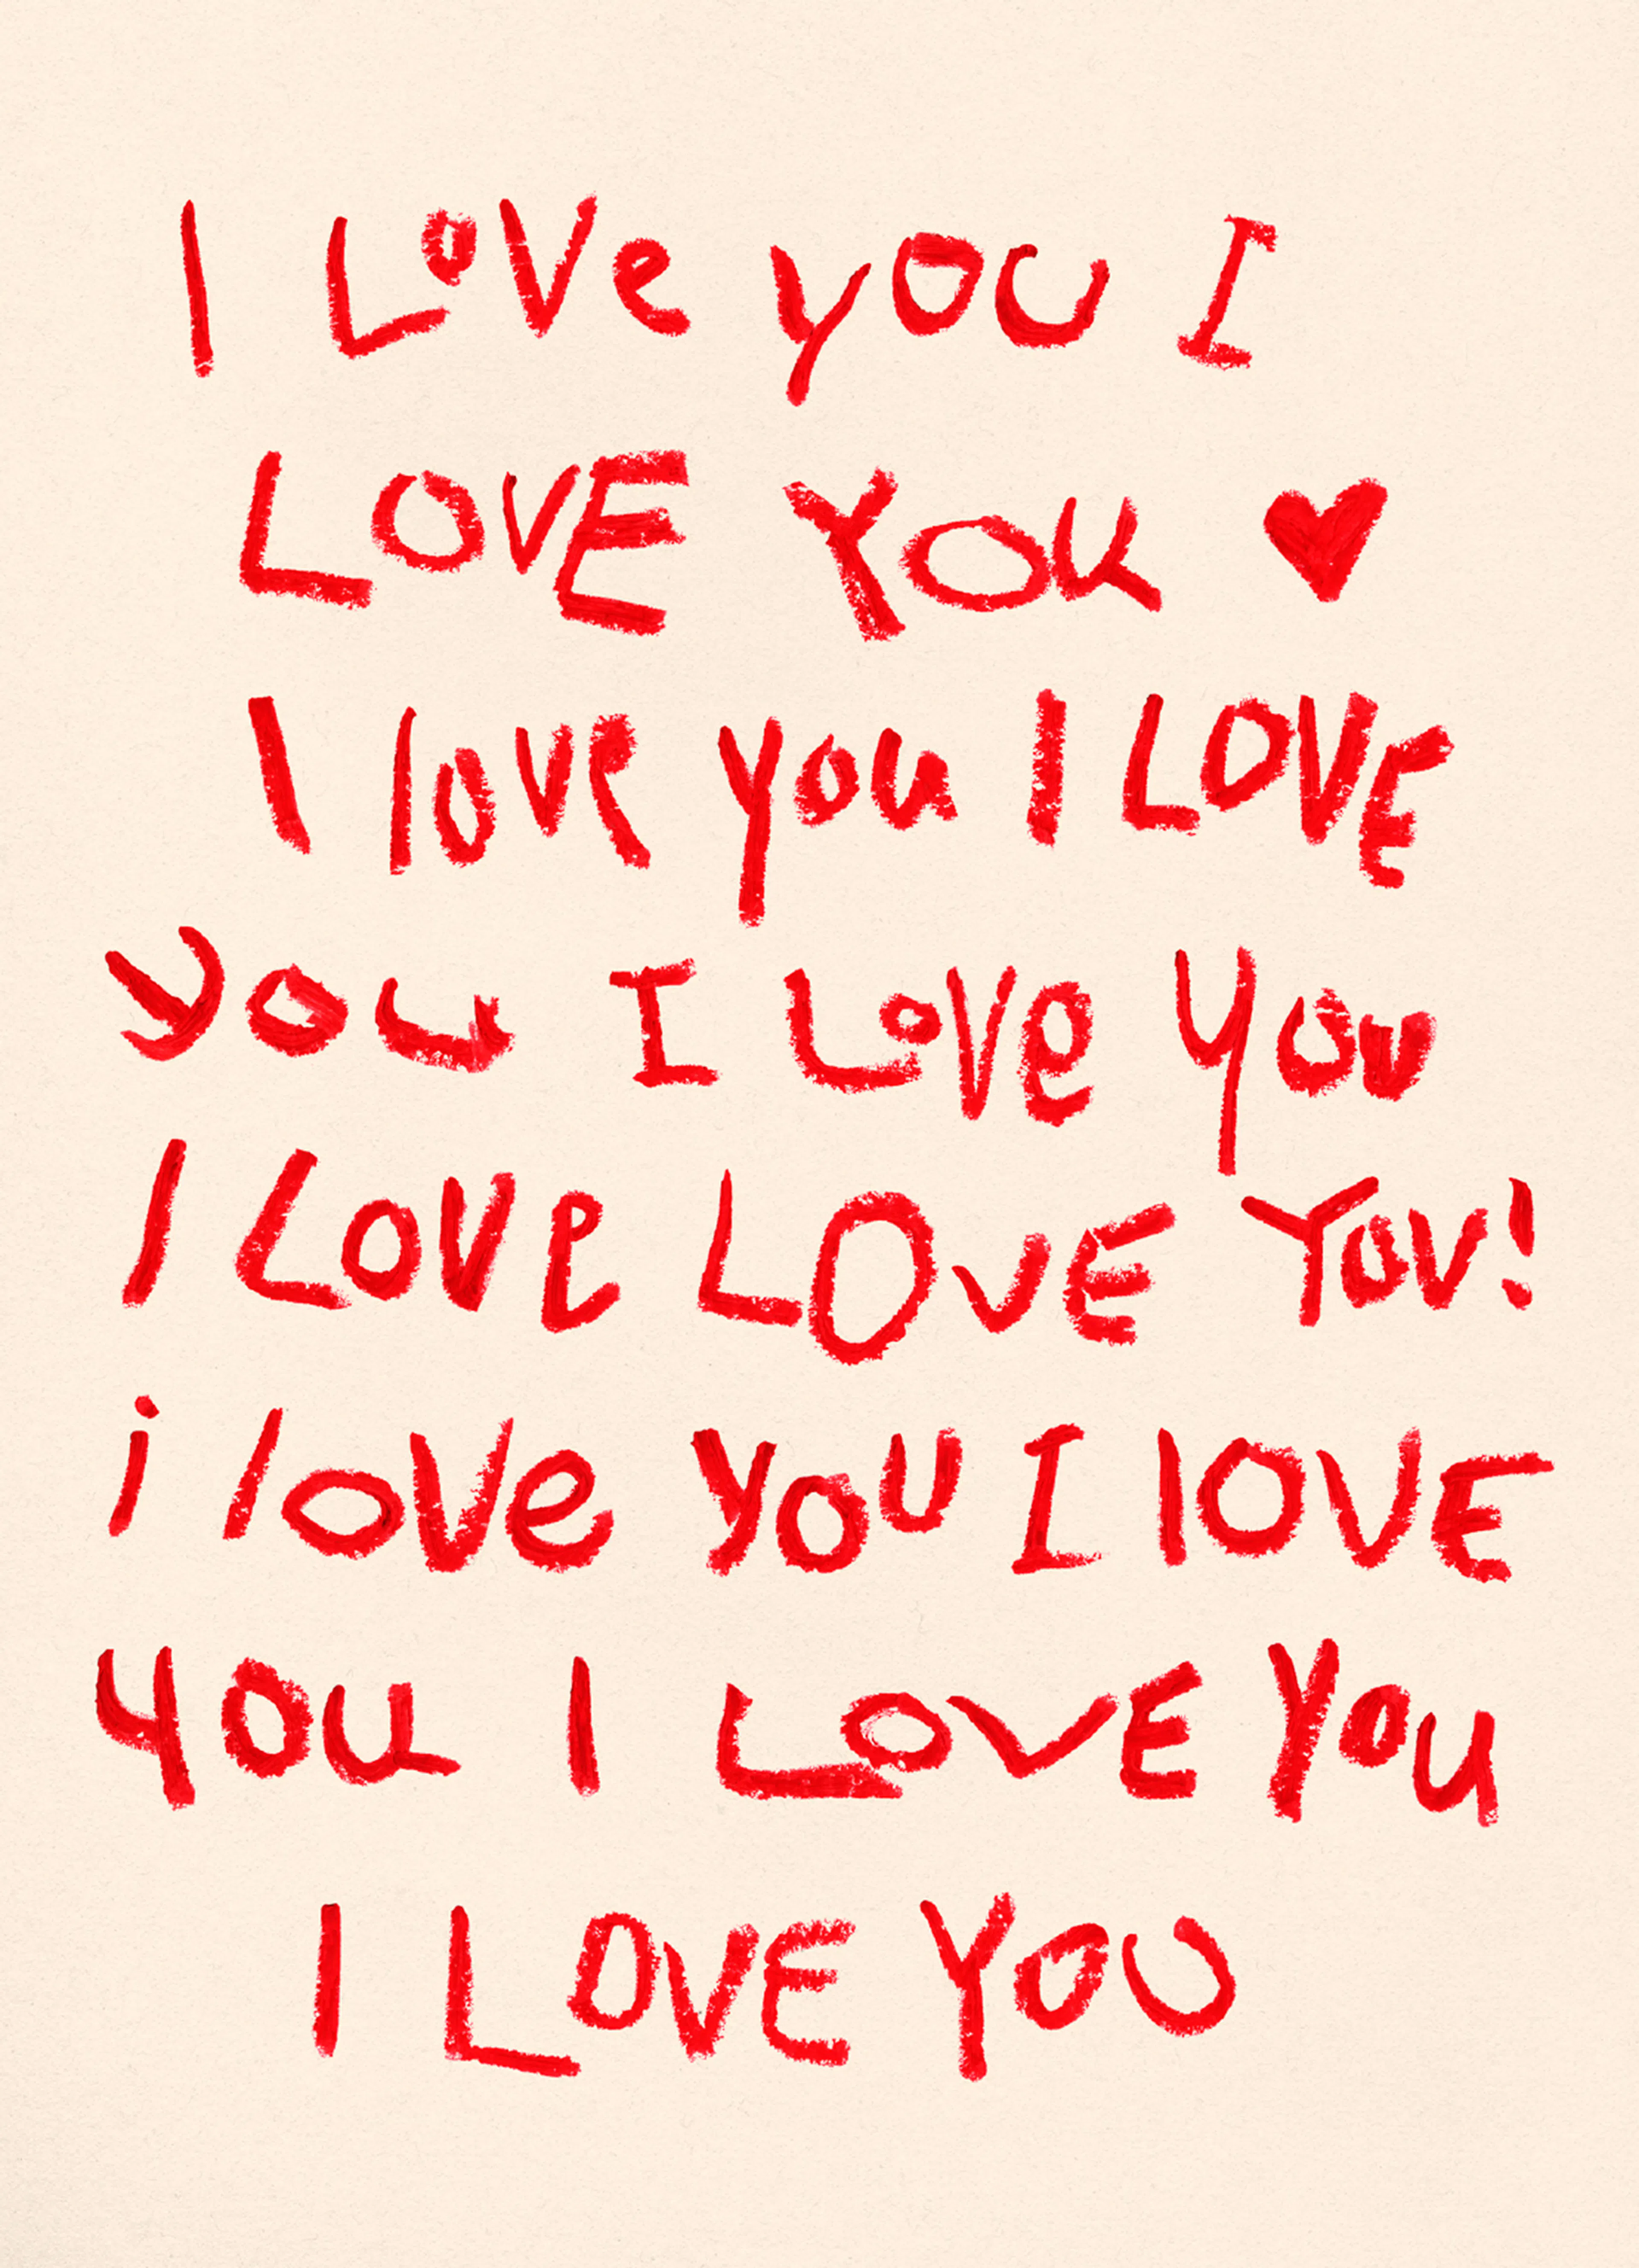 I LoVe yOU I
LOVE YOU ♥
I love you I LOVE
you I LoVe you
I LOVe LOVE YOU!
i loVe yOU I lOVE
you I LOVE YOu
I LOVE YOU